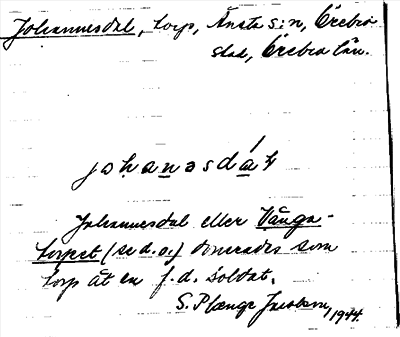 Johannesdal, torp, Ånsta s:n, Örebro
stad, Örebro län.
johanəsdáɫ
Johannesdal eller Vånga-
torpet (se d.o.) donerades som
torp åt en f.d. soldat.
S. Plænge Jacobson, 1944.